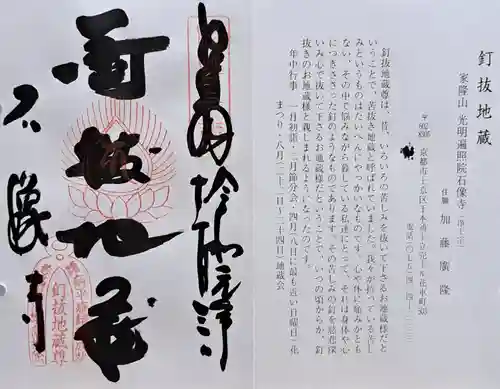 釘抜地蔵
石像寺
釘抜地蔵尊
釘抜地蔵
家隆山 光明遍照院石像寺
住職 加藤廣隆
京都市上京区千本通上立売上ル花車町503
釘抜地蔵尊は、昔、いろいろの苦しみを抜いて下さるお地蔵様だと
いうことで、苦抜き地蔵と呼ばれていました。我々が持っている苦し
みというものはたいへんにやっかいなものです。心や体に痛みかとも
ない、その中で悩みながら暮している私達にとって、それは身体や心
につきささった釘のようなものであります。その苦しみの釘を慈悲深
いみ心で抜いて下さるお地蔵様だということで、いつの頃からか、釘
抜きのお地蔵様と親しまれるようになったのです。
年中行事 一月初詣・二月節分会・四月八日に最も近い日曜日(花
まつり・八月二十二日〜二十四日)地蔵会